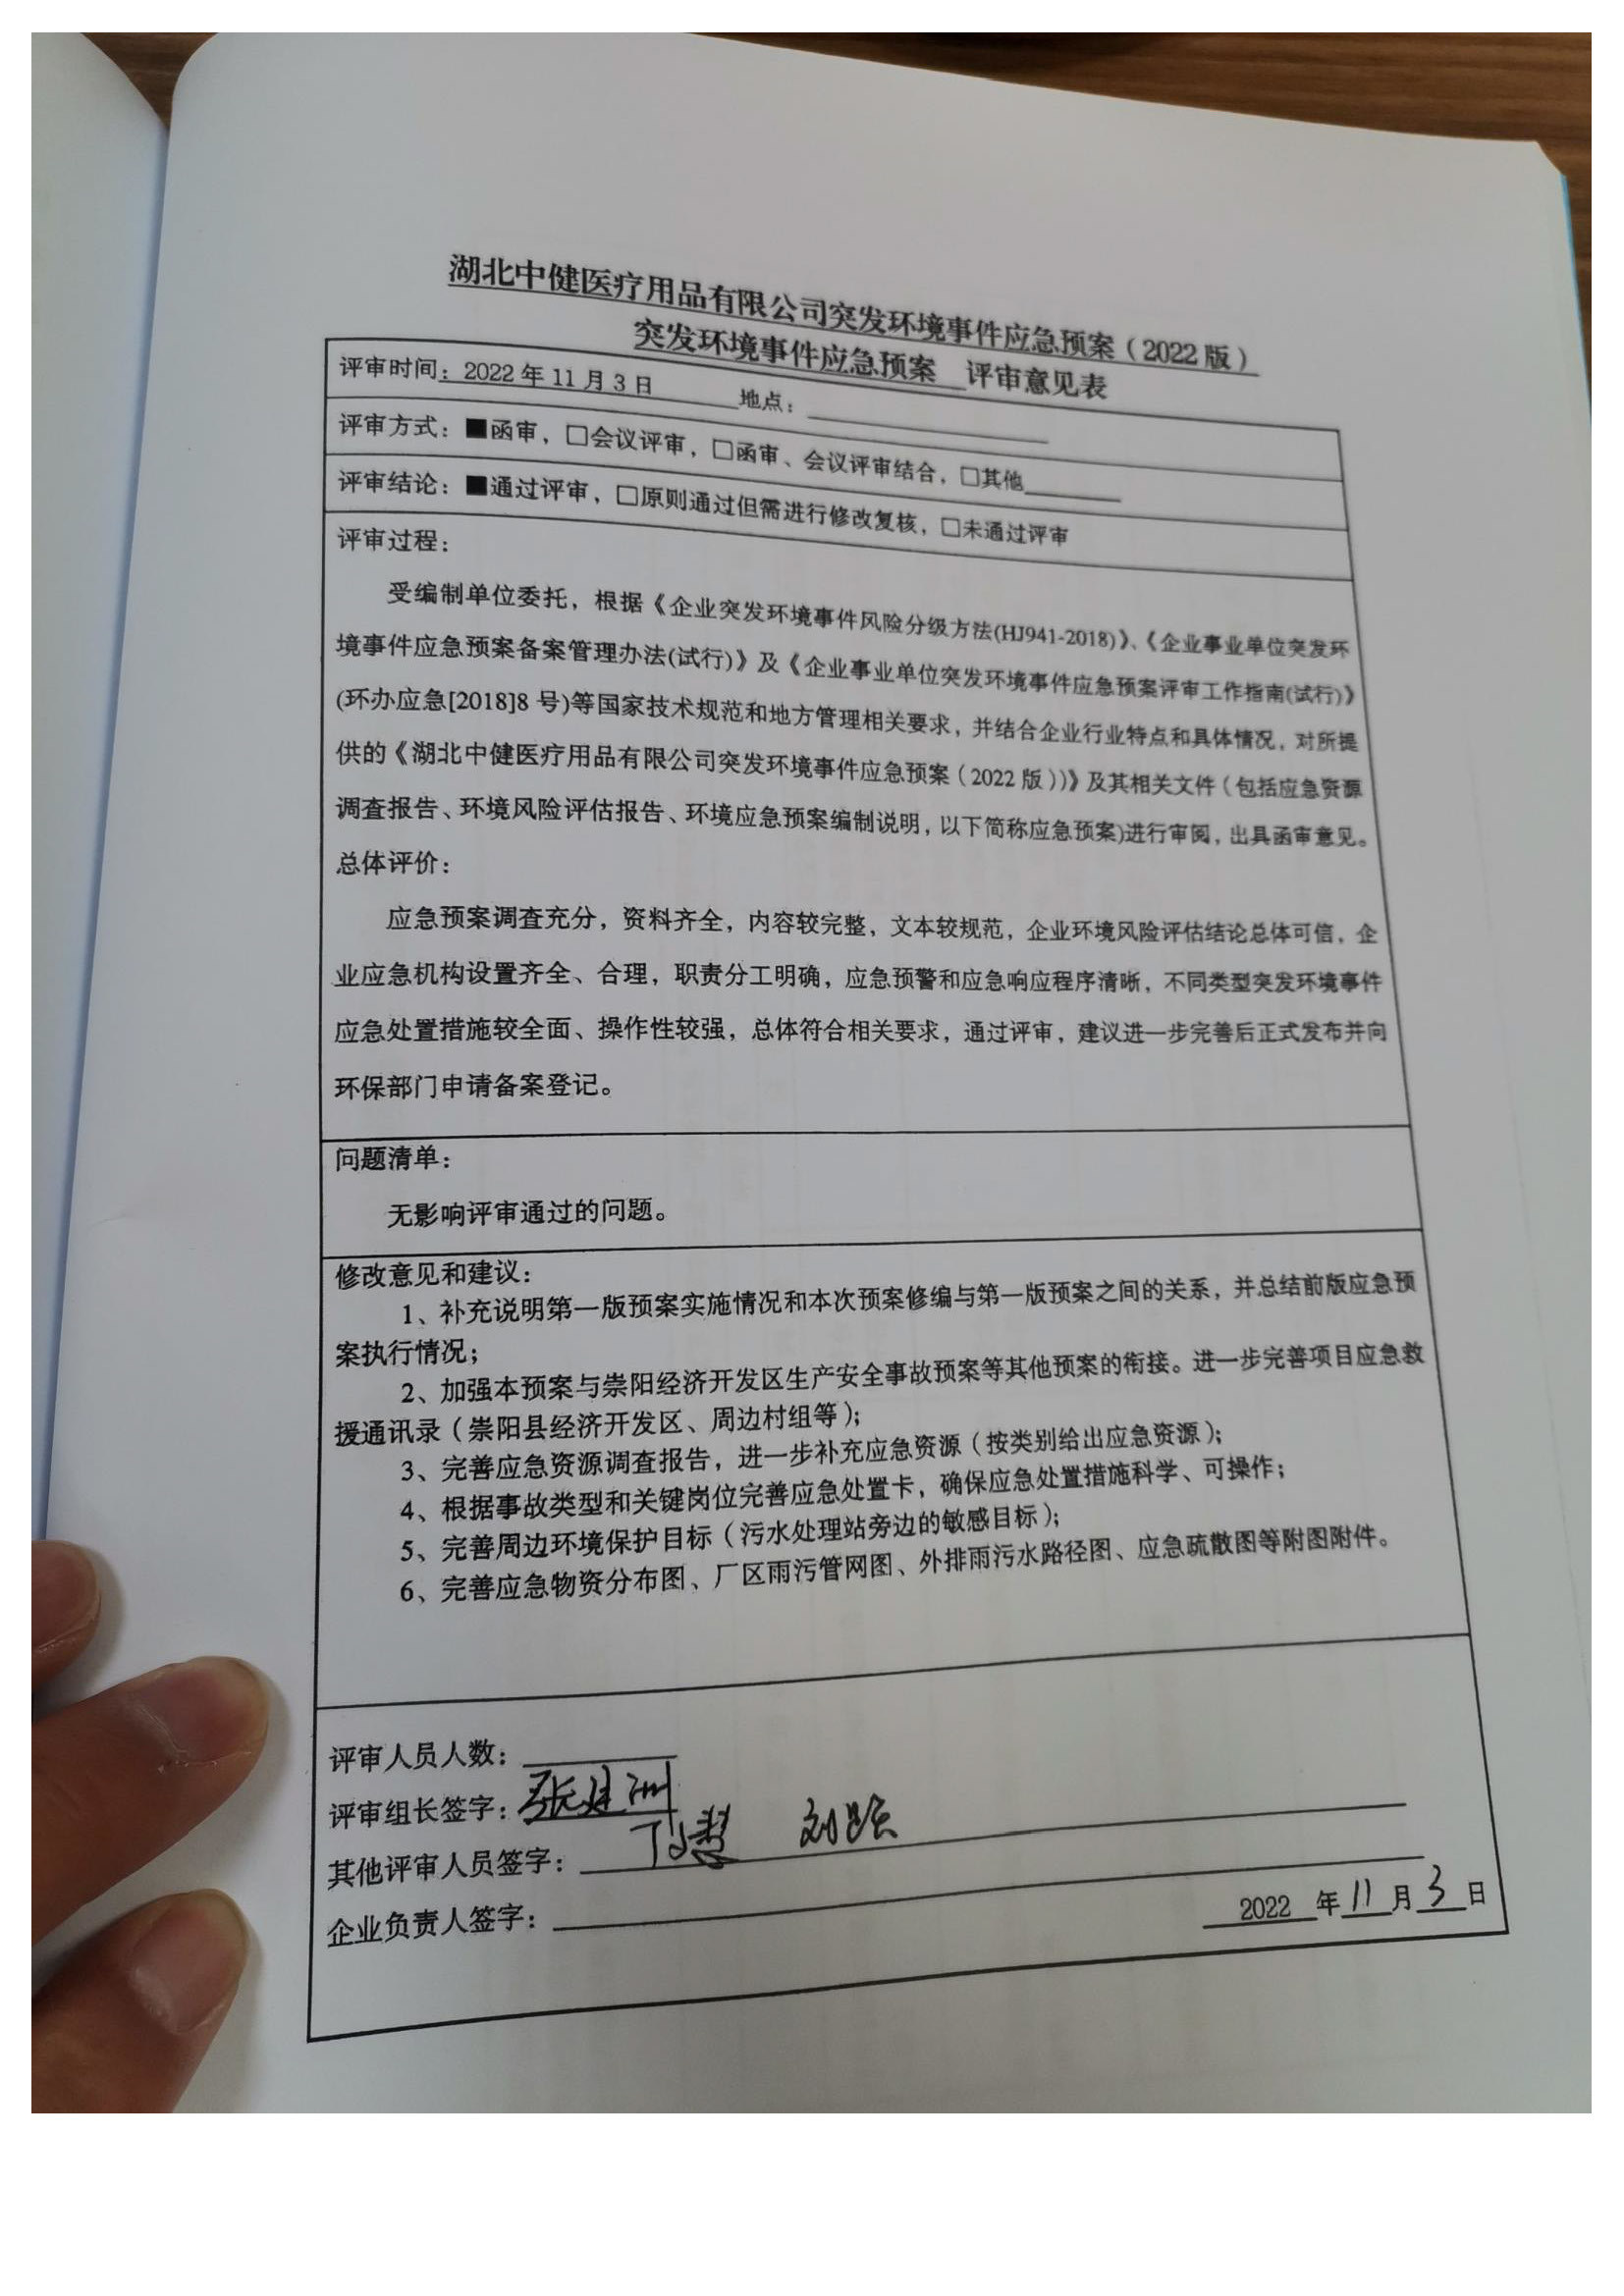 湖北中健医疗用品有限公司突发环境事件应急预案（2022 版）
突发环境事件应急预案 评审意见表
评审时间：2022 年 11 月 3 日 地点：
评审方式：■函审，□会议评审，□函审、会议评审结合，□其他
评审结论：■通过评审，□原则通过但需进行修改复核，□未通过评审
评审过程：
受编制单位委托，根据《企业突发环境事件风险分级方法(HJ941-2018)》、《企业事业单位突发环
境事件应急预案备案管理办法(试行)》及《企业事业单位突发环境事件应急预案评审工作指南(试行)》
(环办应急[2018]8 号)等国家技术规范和地方管理相关要求，并结合企业行业特点和具体情况，对所提
供的《湖北中健医疗用品有限公司突发环境事件应急预案（2022 版））》及其相关文件（包括应急资源
调查报告、环境风险评估报告、环境应急预案编制说明，以下简称应急预案)进行审阅，出具函审意见。
总体评价：
应急预案调查充分，资料齐全，内容较完整，文本较规范，企业环境风险评估结论总体可信，企
业应急机构设置齐全、合理，职责分工明确，应急预警和应急响应程序清晰，不同类型突发环境事件
应急处置措施较全面、操作性较强，总体符合相关要求，通过评审，建议进一步完善后正式发布并向
环保部门申请备案登记。
问题清单：
无影响评审通过的问题。
修改意见和建议：
1、补充说明第一版预案实施情况和本次预案修编与第一版预案之间的关系，并总结前版应急预
案执行情况；
2、加强本预案与崇阳经济开发区生产安全事故预案等其他预案的衔接。进一步完善项目应急救
援通讯录（崇阳县经济开发区、周边村组等）；
3、完善应急资源调查报告，进一步补充应急资源（按类别给出应急资源）；
4、根据事故类型和关键岗位完善应急处置卡，确保应急处置措施科学、可操作；
5、完善周边环境保护目标（污水处理站旁边的敏感目标）；
6、完善应急物资分布图、厂区雨污管网图、外排雨污水路径图、应急疏散图等附图附件。
评审人员人数：
评审组长签字：张建洲
其他评审人员签字：
企业负责人签字：
2022 年 11 月 3 日